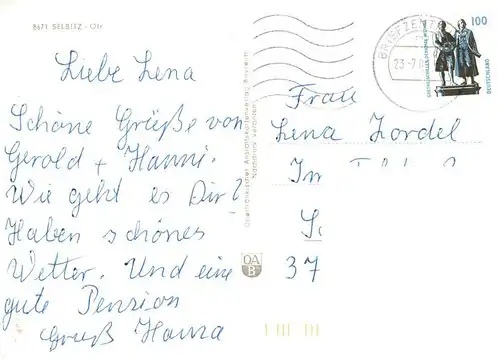 8671 SELBITZ - Ofr
Liebe Lena
Schöne Grüße von
Gerold + Hanni.
Wie geht es Dir?
Haben schönes
Wetter. Und eine
gute Pension
Gruß Hanna
Oberfränkischer Ansichtskartenverlag Bayreuth
Nachdruck verboten
OA
B
BRIEFZENT
23-7.0
100
DEUTSCHLAND
Frau
Lena Zordel
Im
37